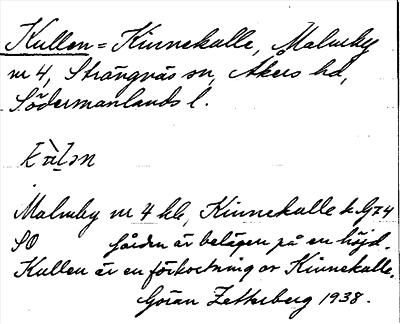 Kullen = Kinnekulle, Malmby
nr 4, Strängnäs sn, Åkers hd,
Södermanlands l.
Malmby nr 4 kb, Kinnekulle
SO Gården är belägen på en höjd.
Kullen är en förkortning av Kinnekulle.
Göran Zetterberg 1938.